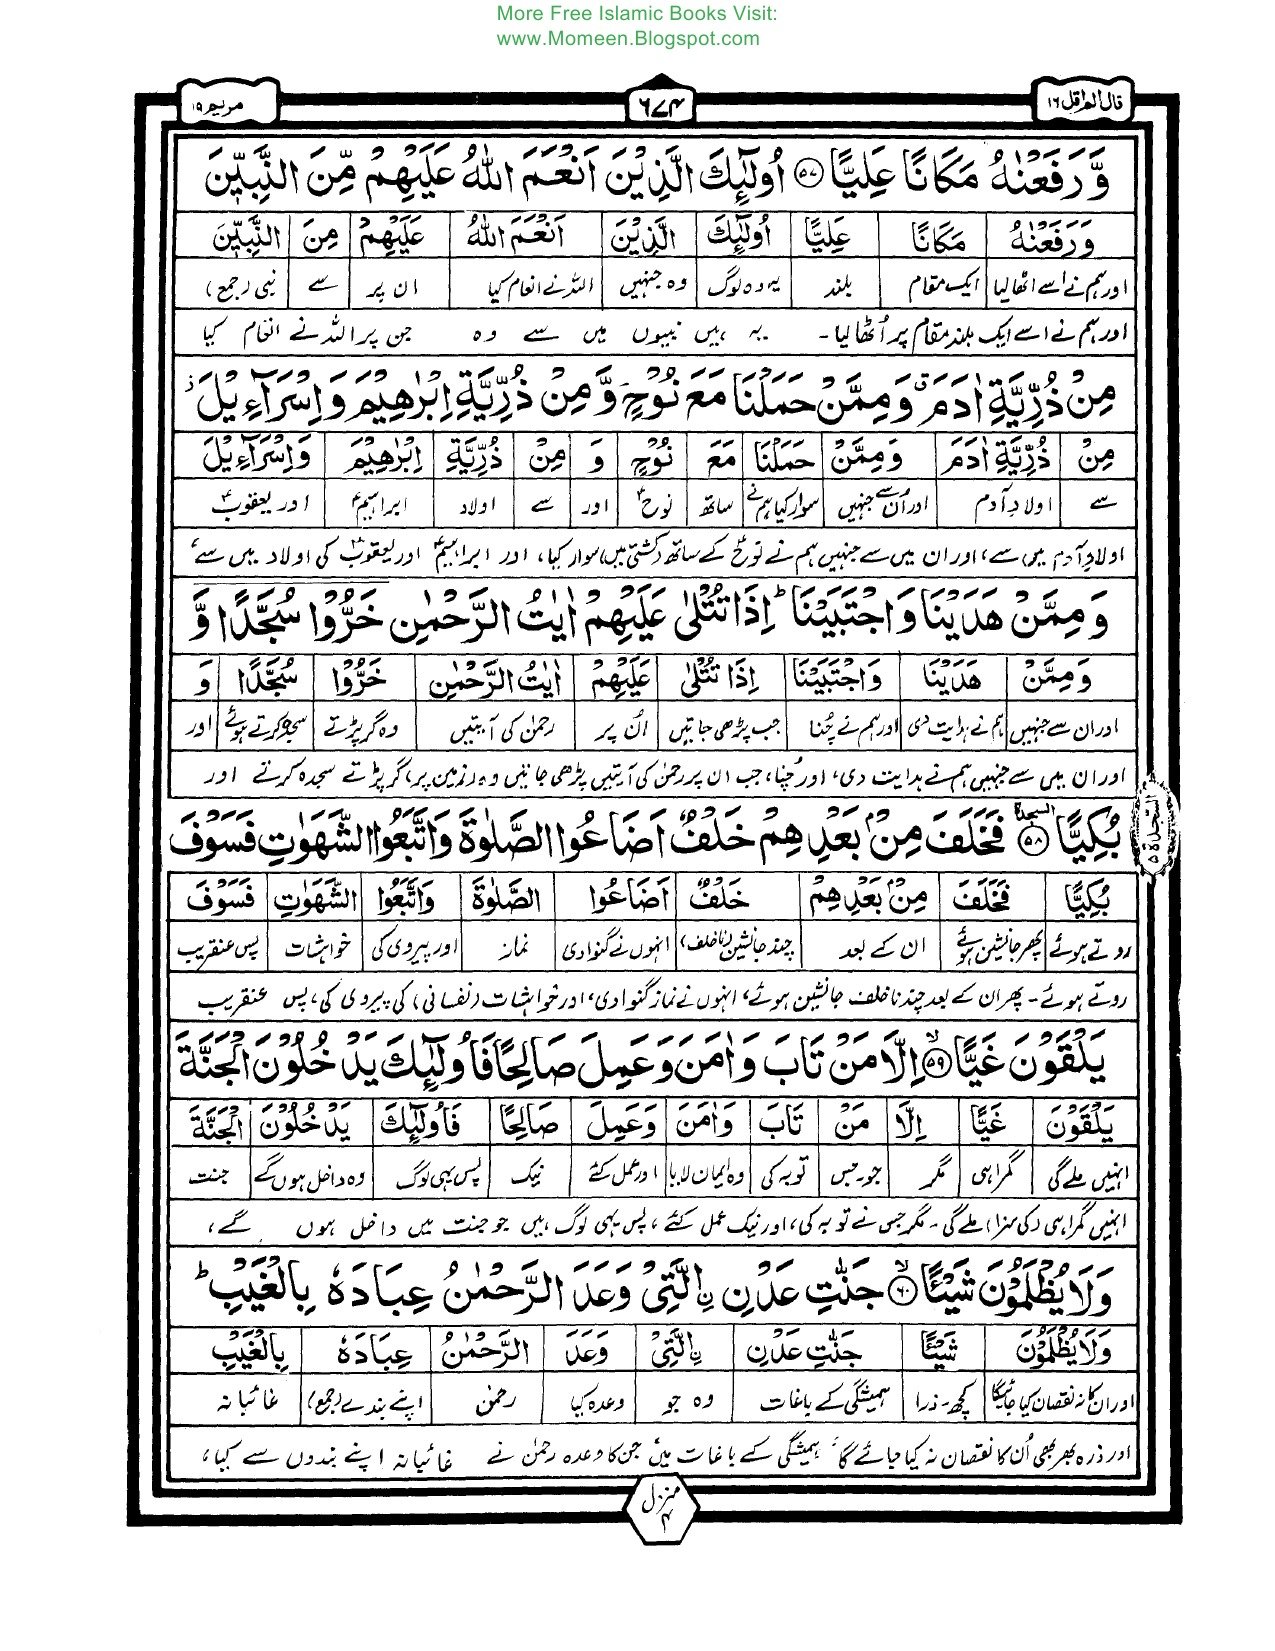 More Free Islamic Books Visit:
www.Momeen.Blogspot.com
قال الم اقل ۱۶
۶۷۴
مریم ۱۹
وَّرَفَعْنٰهُ مَكَانًا عَلِيًّا ۝۵۷ اُولٰٓئِكَ الَّذِيْنَ اَنْعَمَ اللّٰهُ عَلَيْهِمْ مِّنَ النَّبِيّٖنَ
وَرَفَعْنٰهُ مَكَانًا عَلِيًّا اُولٰٓئِكَ الَّذِيْنَ اَنْعَمَ اللّٰهُ عَلَيْهِمْ مِنَ النَّبِيّٖنَ
اور ہم نے اسے اٹھا لیا ایک مقام بلند یہ وہ لوگ وہ جنہیں اللہ نے انعام کیا ان پر سے نبی (جمع)
اور ہم نے اسے ایک بلند مقام پر اُٹھا لیا۔ یہ ہیں نبیوں میں سے وہ جن پر اللہ نے انعام کیا
مِنْ ذُرِّيَّةِ اٰدَمَ ۗ وَمِمَّنْ حَمَلْنَا مَعَ نُوْحٍ ۡ وَّمِنْ ذُرِّيَّةِ اِبْرٰهِيْمَ وَاِسْرَآءِيْلَ ۡ
مِنْ ذُرِّيَّةِ اٰدَمَ وَمِمَّنْ حَمَلْنَا مَعَ نُوْحٍ وَ مِنْ ذُرِّيَّةِ اِبْرٰهِيْمَ وَاِسْرَآءِيْلَ
سے اولادِ آدم اور اُن سے جنہیں سوار کیا ہم نے ساتھ نوحؑ اور سے اولاد ابراہیمؑ اور یعقوبؑ
اولادِ آدم میں سے، اور ان میں سے جنہیں ہم نے نوحؑ کے ساتھ (کشتی میں) سوار کیا، اور ابراہیمؑ اور یعقوبؑ کی اولاد میں سے،
وَمِمَّنْ هَدَيْنَا وَاجْتَبَيْنَا ؕ اِذَا تُتْلٰى عَلَيْهِمْ اٰيٰتُ الرَّحْمٰنِ خَرُّوْا سُجَّدًا وَّ
وَمِمَّنْ هَدَيْنَا وَاجْتَبَيْنَا اِذَا تُتْلٰى عَلَيْهِمْ اٰيٰتُ الرَّحْمٰنِ خَرُّوْا سُجَّدًا وَ
اور ان سے جنہیں ہم نے ہدایت دی اور ہم نے چُنا جب پڑھی جاتیں اُن پر رحمٰن کی آیتیں وہ گر پڑتے سجدہ کرتے ہوئے اور
اور ان میں سے جنہیں ہم نے ہدایت دی، اور چُنا، جب ان پر رحمٰن کی آیتیں پڑھی جاتیں وہ (زمین پر) گر پڑتے سجدہ کرتے اور
بُكِيًّا ۝۵۸ السجدۃ فَخَلَفَ مِنْۢ بَعْدِهِمْ خَلْفٌ اَضَاعُوا الصَّلٰوةَ وَاتَّبَعُوا الشَّهَوٰتِ فَسَوْفَ
السجدۃ ۵
بُكِيًّا فَخَلَفَ مِنْۢ بَعْدِهِمْ خَلْفٌ اَضَاعُوا الصَّلٰوةَ وَاتَّبَعُوا الشَّهَوٰتِ فَسَوْفَ
روتے ہوئے پھر جانشین ہوئے ان کے بعد چند جانشین (ناخلف) انہوں نے گنوا دی نماز اور پیروی کی خواہشات پس عنقریب
روتے ہوئے۔ پھر ان کے بعد چند ناخلف جانشین ہوئے، انہوں نے نماز گنوا دی، اور خواہشات (نفسانی) کی پیروی کی، پس عنقریب
يَلْقَوْنَ غَيًّا ۝۵۹ۙ اِلَّا مَنْ تَابَ وَاٰمَنَ وَعَمِلَ صَالِحًا فَاُولٰٓئِكَ يَدْخُلُوْنَ الْجَنَّةَ
يَلْقَوْنَ غَيًّا اِلَّا مَنْ تَابَ وَاٰمَنَ وَعَمِلَ صَالِحًا فَاُولٰٓئِكَ يَدْخُلُوْنَ الْجَنَّةَ
انہیں ملے گی گمراہی مگر جو۔جس توبہ کی وہ ایمان لایا اور عمل کئے نیک پس یہی لوگ وہ داخل ہوں گے جنت
انہیں گمراہی (کی سزا) ملے گی۔ مگر جس نے توبہ کی، اور نیک عمل کئے، پس یہی لوگ ہیں جو جنت میں داخل ہوں گے،
وَلَا يُظْلَمُوْنَ شَيْـًٔا ۝۶۰ۙ جَنّٰتِ عَدْنِ ِۨالَّتِيْ وَعَدَ الرَّحْمٰنُ عِبَادَهٗ بِالْغَيْبِ ؕ
وَلَا يُظْلَمُوْنَ شَيْـًٔا جَنّٰتِ عَدْنِ ِۨالَّتِيْ وَعَدَ الرَّحْمٰنُ عِبَادَهٗ بِالْغَيْبِ
اور ان کا نہ نقصان کیا جائیگا کچھ۔ذرا ہمیشگی کے باغات وہ جو وعدہ کیا رحمٰن اپنے بندے (جمع) غائبانہ
اور ذرہ بھر بھی اُن کا نقصان نہ کیا جائے گا، ہمیشگی کے باغات میں، جن کا وعدہ رحمٰن نے غائبانہ اپنے بندوں سے کیا،
منزل ۴